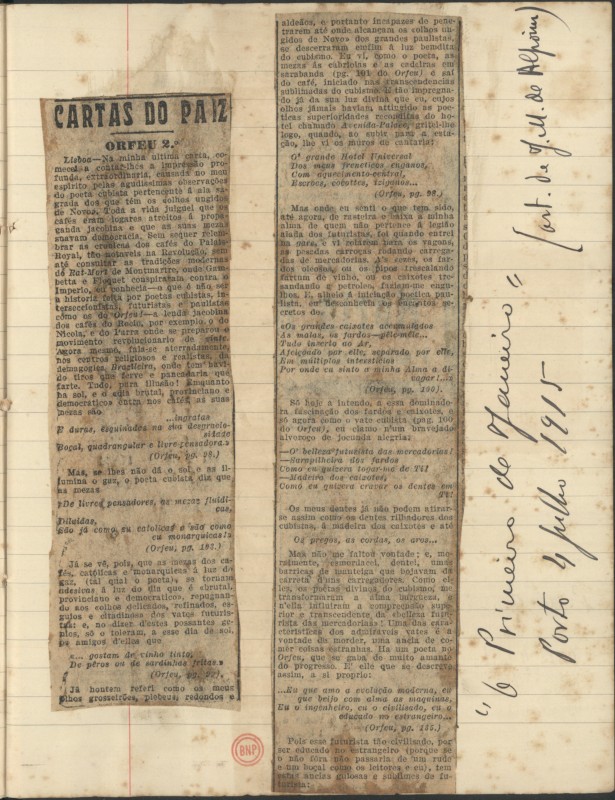 CARTAS DO PAIZ
ORFEU 2.º
Lisboa—Na minha ultima carta, co-
mecei a contar-lhes a impressão pro-
funda, extraordinaria, causada no meu
espirito pelas agudissimas observações
do poeta cubista pertencente á ala sa-
grada dos que têm os «olhos ungidos
de Novo». Toda a vida julguei que os
cafés eram logares atreitos á propa-
ganda jacobina e que as suas mezas
suavam democracia. Sem sequer relem-
brar as cronicas dos cafés do Palais-
Royal, tão notaveis na Revolução, sem
até consultar as tradições modernas
do Rat-Mort de Montmartre, onde Gam-
betta e Floquet conspiraram contra o
Imperio, eu conhecia—o que é não ser
a historia feita por poetas cubistas, in-
terseccionistas, futuristas e paulistas
como os do Orfeu!—a lenda jacobina
dos cafés do Rocio, por exemplo, o do
Nicola, e do Parra onde se preparou o
movimento revolucionario de vinte.
Agora mesmo, fala-se aterradamente,
nos centros religiosos e realistas, da
demagogica Brazileira, onde tem havi-
do tiros que ferve e pancadaria que
farte. Todo, pura illusão! Emquanto
ha sol, e o dia brutal, provinciano e
democratico entra nos cafés, as suas
mezas são
...ingratas
E duras, esquinadas na sua desgracio-
sidade
Boçal, quadrangular e livre-pensadora.»
(Orfeu, pg. 98.)
Mas, se lhes não dá o sol e as il-
lumina o gaz, o poeta cubista diz que
as mezas
«De livres pensadoras, as mezas fluidi-
cas,
Diluidas,
São já como eu catolicas e são como
eu monarquicas!»
(Orfeu, pg. 102.)
Já se vê, pois, que as mezas dos ca-
fés, catolicas e monarquicas á luz do
guz, (tal qual o poeta), se tornam
indesicas á luz do dia que é «brutal,
provinciano e democratico», repugnan-
do aos olhos delicados, refinados, es-
guios e citadinos dos vates futuris-
tas: e, no dizer d'estes possantes ge-
nios, só o toleram, a esse dia de sol,
os amigos d'elles que
«... gostam de vinho tinto,
De pêros ou de sardinhas fritas.»
(Orfeu, pg. 92).
Já hontem referi como os meus
olhos grosseirões, plebeus, redondos e
aldeãos, e portanto incapazes de pene-
trarem até onde alcançam os «olhos un-
gidos de Novo» dos grandes paulistas,
se descerraram emfim á luz bendita
do cubismo. Eu vi, como o poeta, as
mezas ás cabriolas e as cadeiras em
sarabanda (pg. 101 do Orfeu) e saí
do café, iniciado nas transcendencias
sublimadas do cubismo. E tão impregna-
do já da sua luz divina que eu, cujos
olhos jámais haviam attingido as poe-
ticas superioridades reconditas do ho-
tel chamado Avenida-Palace, gritei-lhe
logo, quando, ao subir para a esta-
ção, lhe vi os muros de cantaria:
O' grande Hotel Universal
Dos meus freneticos enganos,
Com aquecimento-central,
Escrocs, cocottes, tziganos...
(Orfeu, pg. 98.)
Mas onde eu senti o que tem sido,
até agora, de rasteira e baixa a minha
alma de quem não pertence á legião
alada dos futuristas, foi quando entrei
na gare, e vi rolarem para os vagons,
as pesadas carroças rodando carrega-
das de mercadorias. A's vezes, os far-
dos oleosos, ou os pipos trescalando
fartum do vinho, ou os caixotes tre-
sandando a petroleo, faziam-me engu-
lhos. E, alheio á iniciação poetica pau-
lista, eu desconhecia os encantos se-
cretos de
«Os grandes caixotes accumulados
As malas, os fardos—pêle-mêle...
Tudo inserto no Ar,
Afeiçoado por elle, separado por elle,
Em multiplos intersticios
Por onde eu sinto a minh'Alma a di-
vagar!...»
(Orfeu, pg. 100).
Só hoje a intendo, a essa deminado-
ra fascinação dos fardos e caixotes, e
só agora como o vate cubista (pag. 100
do Orfeu), eu clamo n'um bravejado
alvoroço de jocunda alegria:
—O' belleza futurista das mercadorias!
—Sarapilheira dos fardos
Como eu quizera togar-me de Ti!
—Madeira dos caixotes,
Como eu quizera cravar os dentes em
Ti!
Os meus dentes já não podem atirar-
se assim como os dentes rilhadores dos
cubistas, á madeira dos caixotes e até
Os pregos, as cordas, os aros...
Mas não me faltou vontade; e, mo-
ralmente, remordisquei, dentei, umas
barricas de manteiga que baixavam da
carreta d'uns carregadores. Como ei-
les, os poetas divinos do cubismo, me
transformaram a alma nazarena, e
n'ella infiltraram a comprensão supe-
rior e transcendente da «belleza futu-
rista das mercadorias»! Uma das cara-
cteristicas dos admiraveis vates é a
vontade de morder, uma ancia de co-
mer coisas estranhas. Ha um poeta no
Orfeu, que se gaba de muito amante
do progresso. E' elle que se descreve
assim, a si proprio:
...Eu que amo a evolução moderna, eu
que beijo com alma as maquinas,
Eu o ingenheiro, eu o civilisado, eu o
educado no estrangeiro...
(Orfeu, pg. 155.)
Pois esse futurista tão civilisado, por
ser educado no estrangeiro (porque se
o não fôra não passaria de um rude
e um boçal como os leitores e eu), tem
estas ancias gulosas e sublimes de fu-
turista:
BNP
"O Primeiro de Janeiro"
Porto 4 julho 1915
(art. de J. M. de Alpoim)